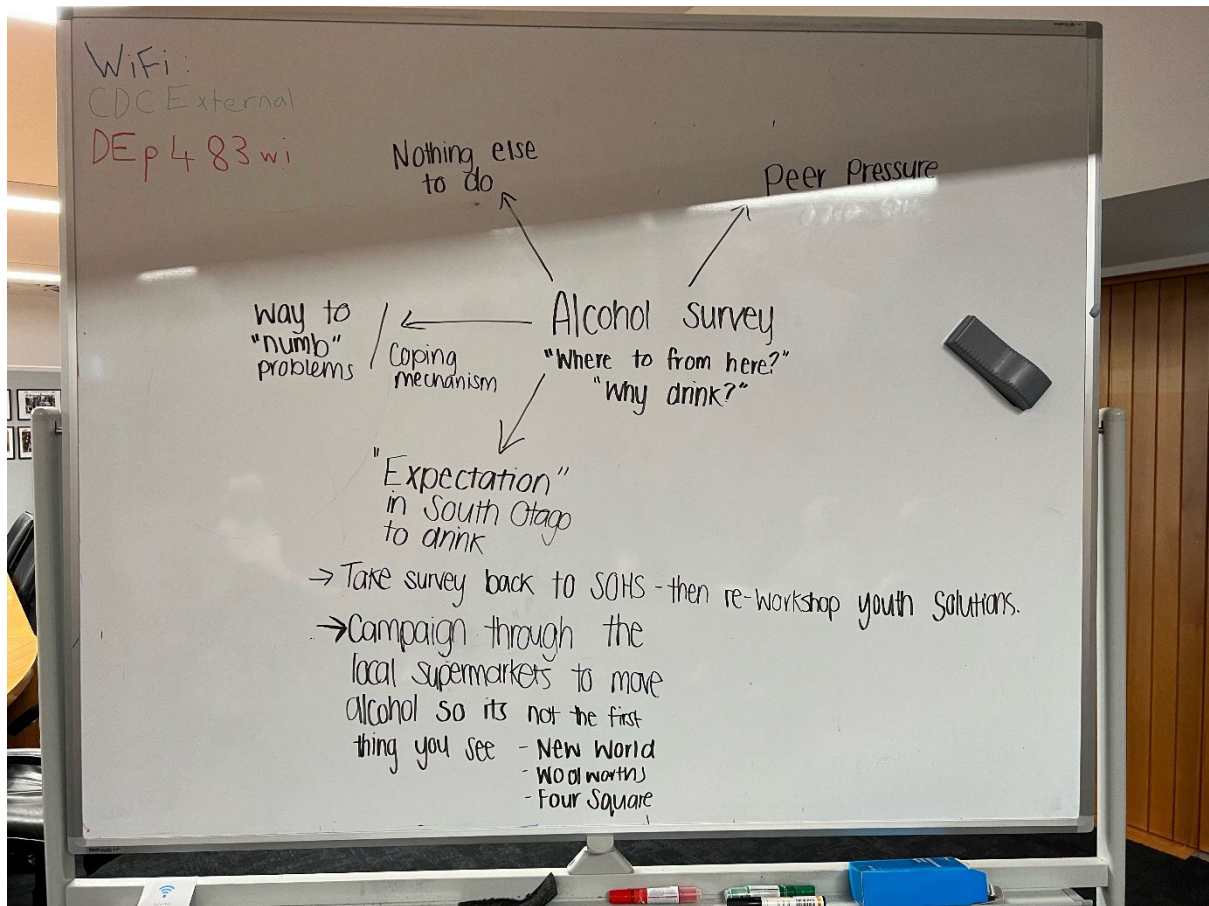 WiFi:
CDC External
DEp483wi
Nothing else
to do
Peer Pressure
Way to
"numb"
problems
/
Coping
mechanism
Alcohol survey
"Where to from here?"
"Why drink?"
"Expectation"
in South Otago
to drink
→ Take survey back to SOHS - then re-workshop youth solutions.
→ Campaign through the
local supermarkets to move
alcohol so its not the first
thing you see - New World
- Woolworths
- Four Square